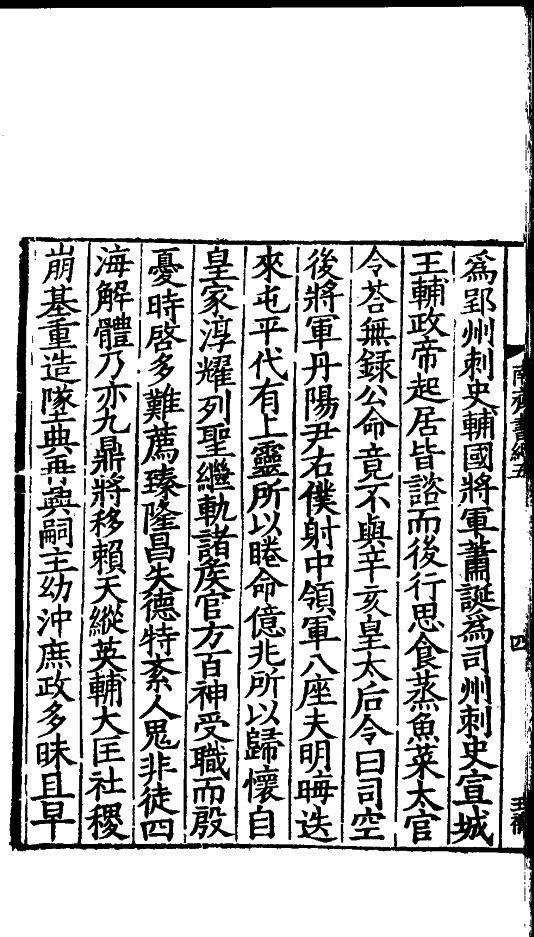 南齊書紀五
四
爲郢州刺史輔國將軍蕭誕爲司州刺史宣城
王輔政帝起居皆諮而後行思食蒸魚菜太官
令荅無錄公命竟不與辛亥皇太后令曰司空
後將軍丹陽尹右僕射中領軍八座夫明晦迭
來屯平代有上靈所以睠命億兆所以歸懷自
皇家淳耀列聖繼軌諸侯官方百神受職而殷
憂時啓多難薦臻隆昌失德特紊人鬼非徒四
海解體乃亦九鼎將移賴天縱英輔大匡社稷
崩基重造墜典再興嗣主幼沖庶政多昧且早